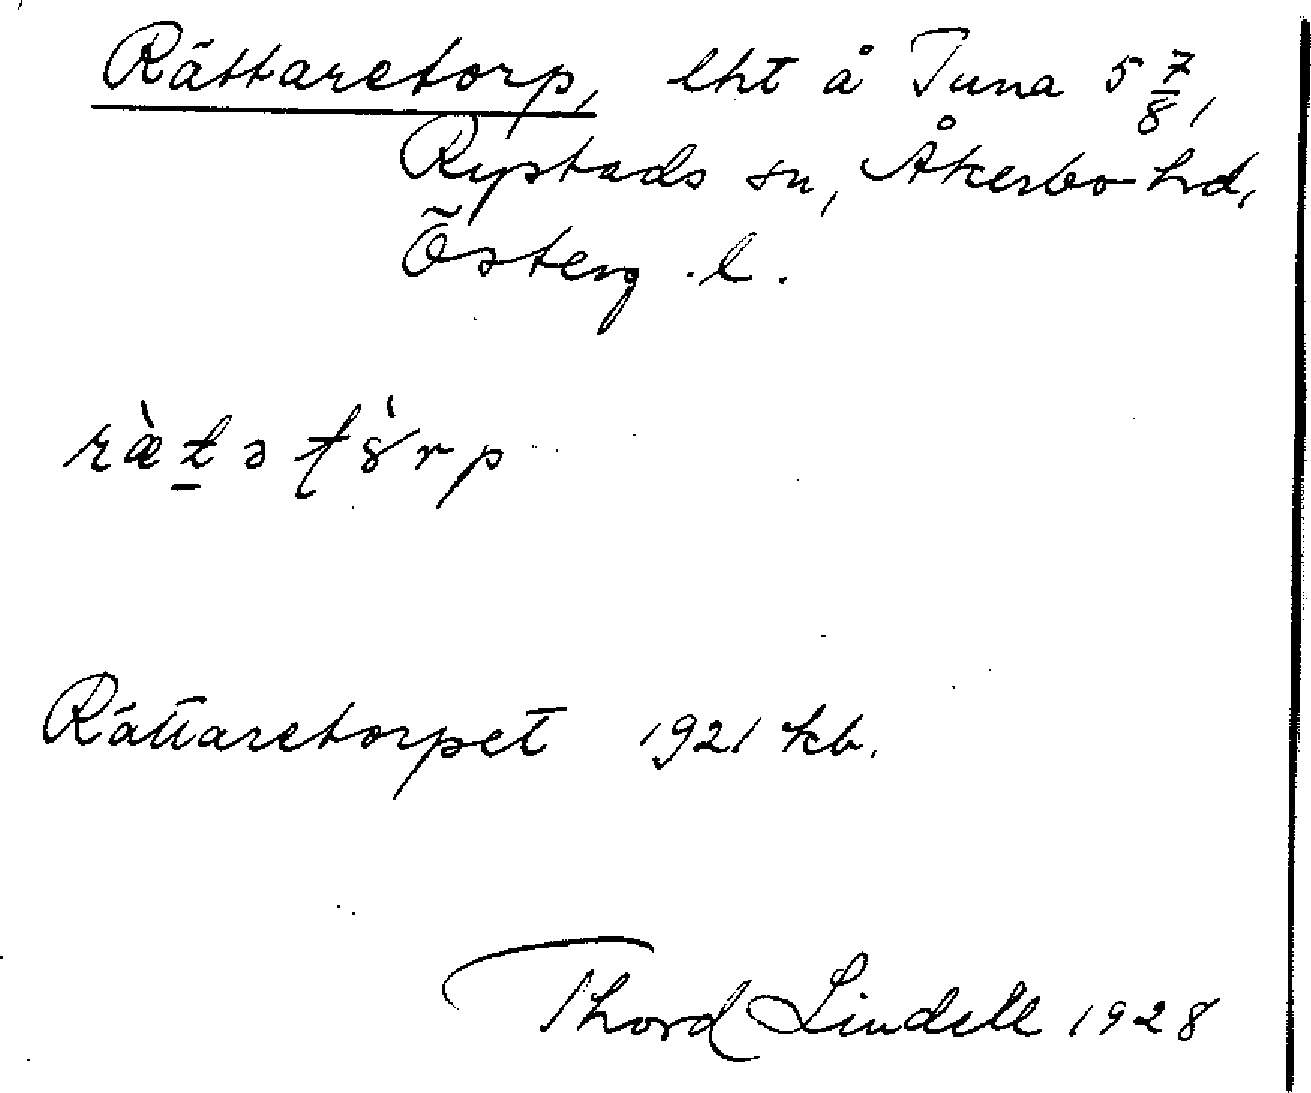 Rättaretorp, lht å Tuna 5 7/8,
Rystads sn, Åkerbo hd,
Österg. l.
ràt̠ətȣ́rp
Rättaretorpet 1921 kb.
Thord Lindell 1928